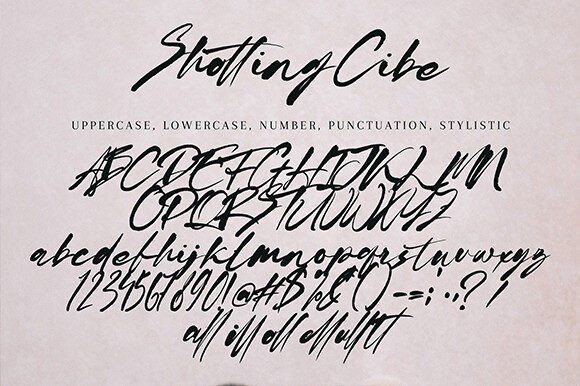 Shotting Cibe
UPPERCASE, LOWERCASE, NUMBER, PUNCTUATION, STYLISTIC
ABCDEFGHIJKLMN
OPQRSTUVWXYZ
abcdefghijklmnopqrstuvwxyz
1234567890!@#$%&()-=;:.,?!
all ill oll ell ull tt